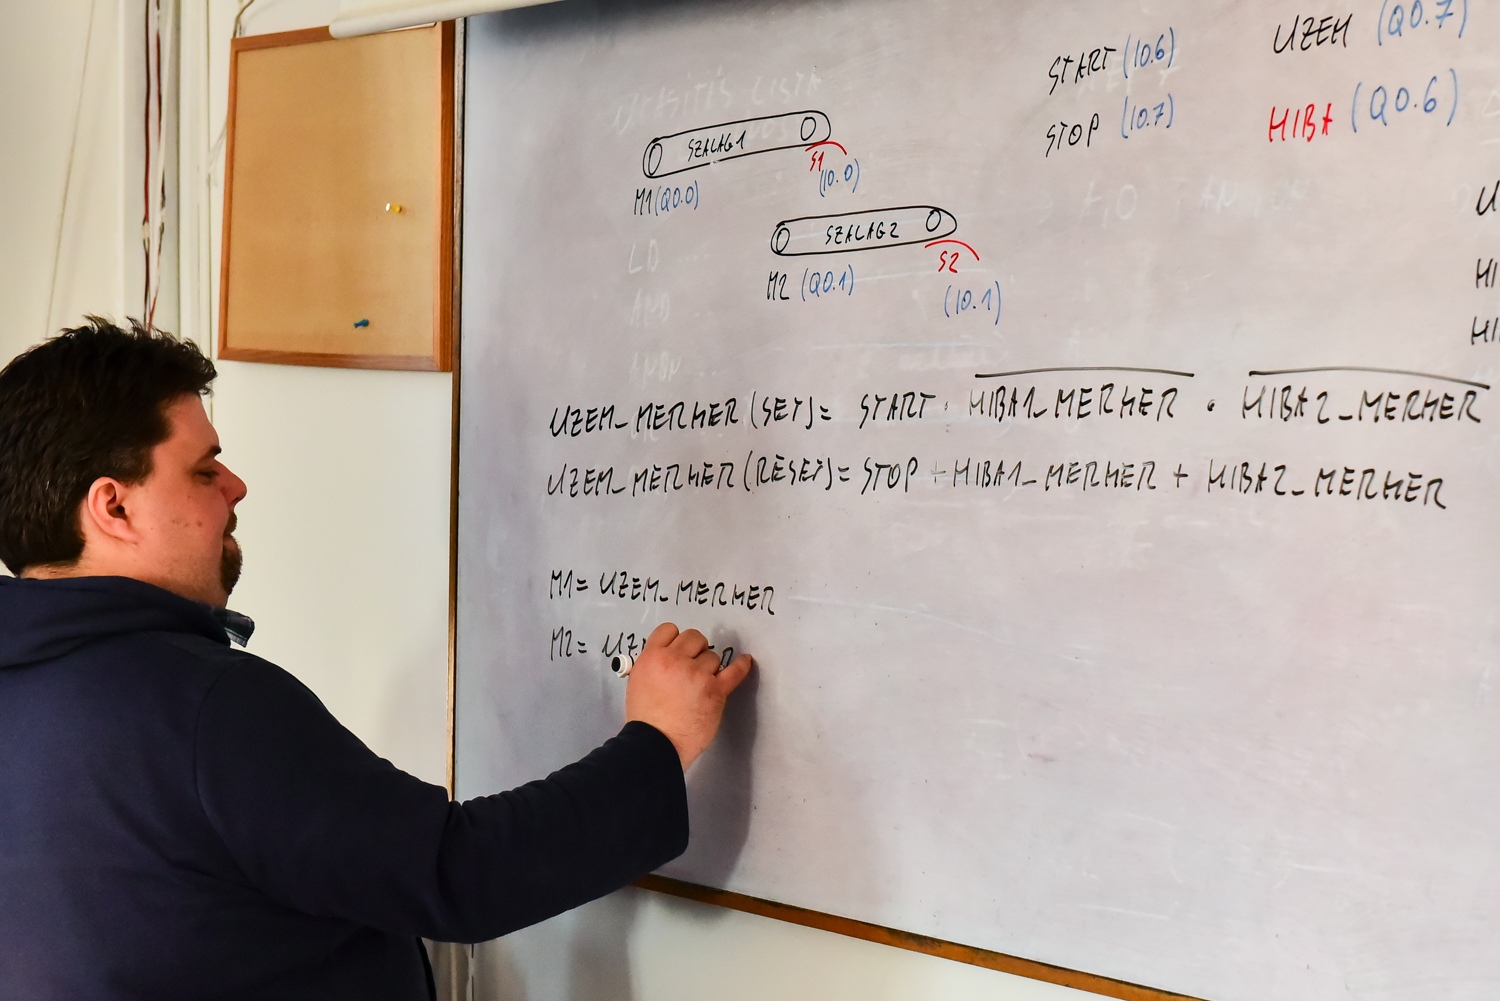 START (I0.6)
STOP (I0.7)
UZEM (Q0.7)
HIBA (Q0.6)
SZALAG1
S1
(I0.0)
M1 (Q0.0)
SZALAG2
S2
(I0.1)
M2 (Q0.1)
LD ...
AND ...
UZEM_MERKER (SET) = START · HIBA1_MERKER · HIBA2_MERKER
UZEM_MERKER (RESET) = STOP + HIBA1_MERKER + HIBA2_MERKER
M1 = UZEM_MERKER
M2 =